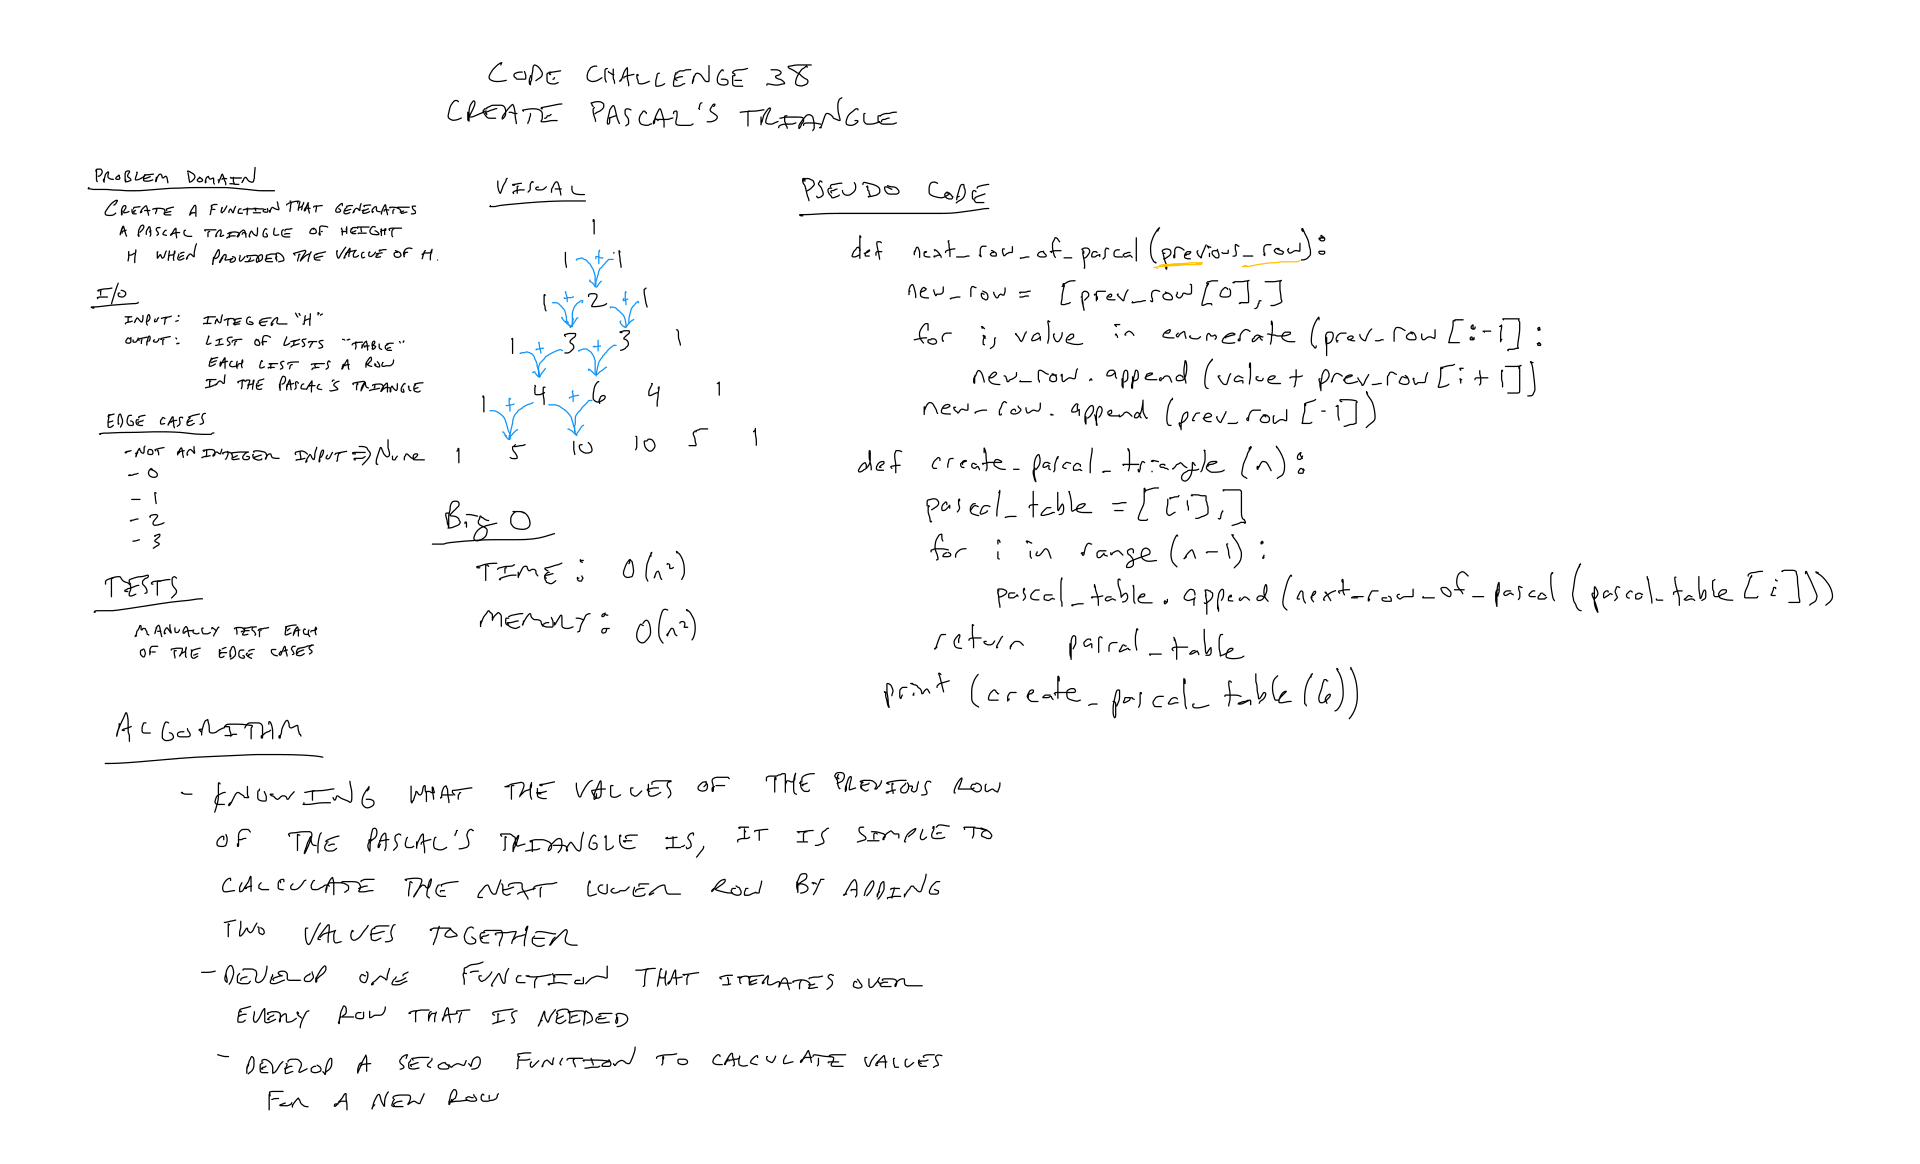 CODE CHALLENGE 38
CREATE PASCAL'S TRIANGLE
PROBLEM DOMAIN
CREATE A FUNCTION THAT GENERATES
A PASCAL TRIANGLE OF HEIGHT
H WHEN PROVIDED THE VALUE OF H.
I/O
INPUT: INTEGER "H"
OUTPUT: LIST OF LISTS "TABLE"
EACH LIST IS A ROW
IN THE PASCAL'S TRIANGLE
EDGE CASES
- NOT AN INTEGER INPUT => None
- 0
- 1
- 2
- 3
TESTS
MANUALLY TEST EACH
OF THE EDGE CASES
VISUAL
1
1 + 1
1 + 2 + 1
1 + 3 + 3 1
1 + 4 + 6 4 1
1 5 10 10 5 1
Big O
TIME: O(n²)
MEMORY: O(n²)
PSEUDO CODE
def next_row_of_pascal (previous_row):
new_row = [prev_row[0],]
for i, value in enumerate (prev_row[:-1]:
new_row.append (value + prev_row[i+1])
new_row.append (prev_row[-1])
def create_pascal_triangle (n):
pascal_table = [[1],]
for i in range (n-1):
pascal_table.append (next_row_of_pascal (pascal_table[i]))
return pascal_table
print (create_pascal_table (6))
ALGORITHM
- KNOWING WHAT THE VALUES OF THE PREVIOUS ROW
OF THE PASCAL'S TRIANGLE IS, IT IS SIMPLE TO
CALCULATE THE NEXT LOWER ROW BY ADDING
TWO VALUES TOGETHER
- DEVELOP ONE FUNCTION THAT ITERATES OVER
EVERY ROW THAT IS NEEDED
- DEVELOP A SECOND FUNCTION TO CALCULATE VALUES
FOR A NEW ROW